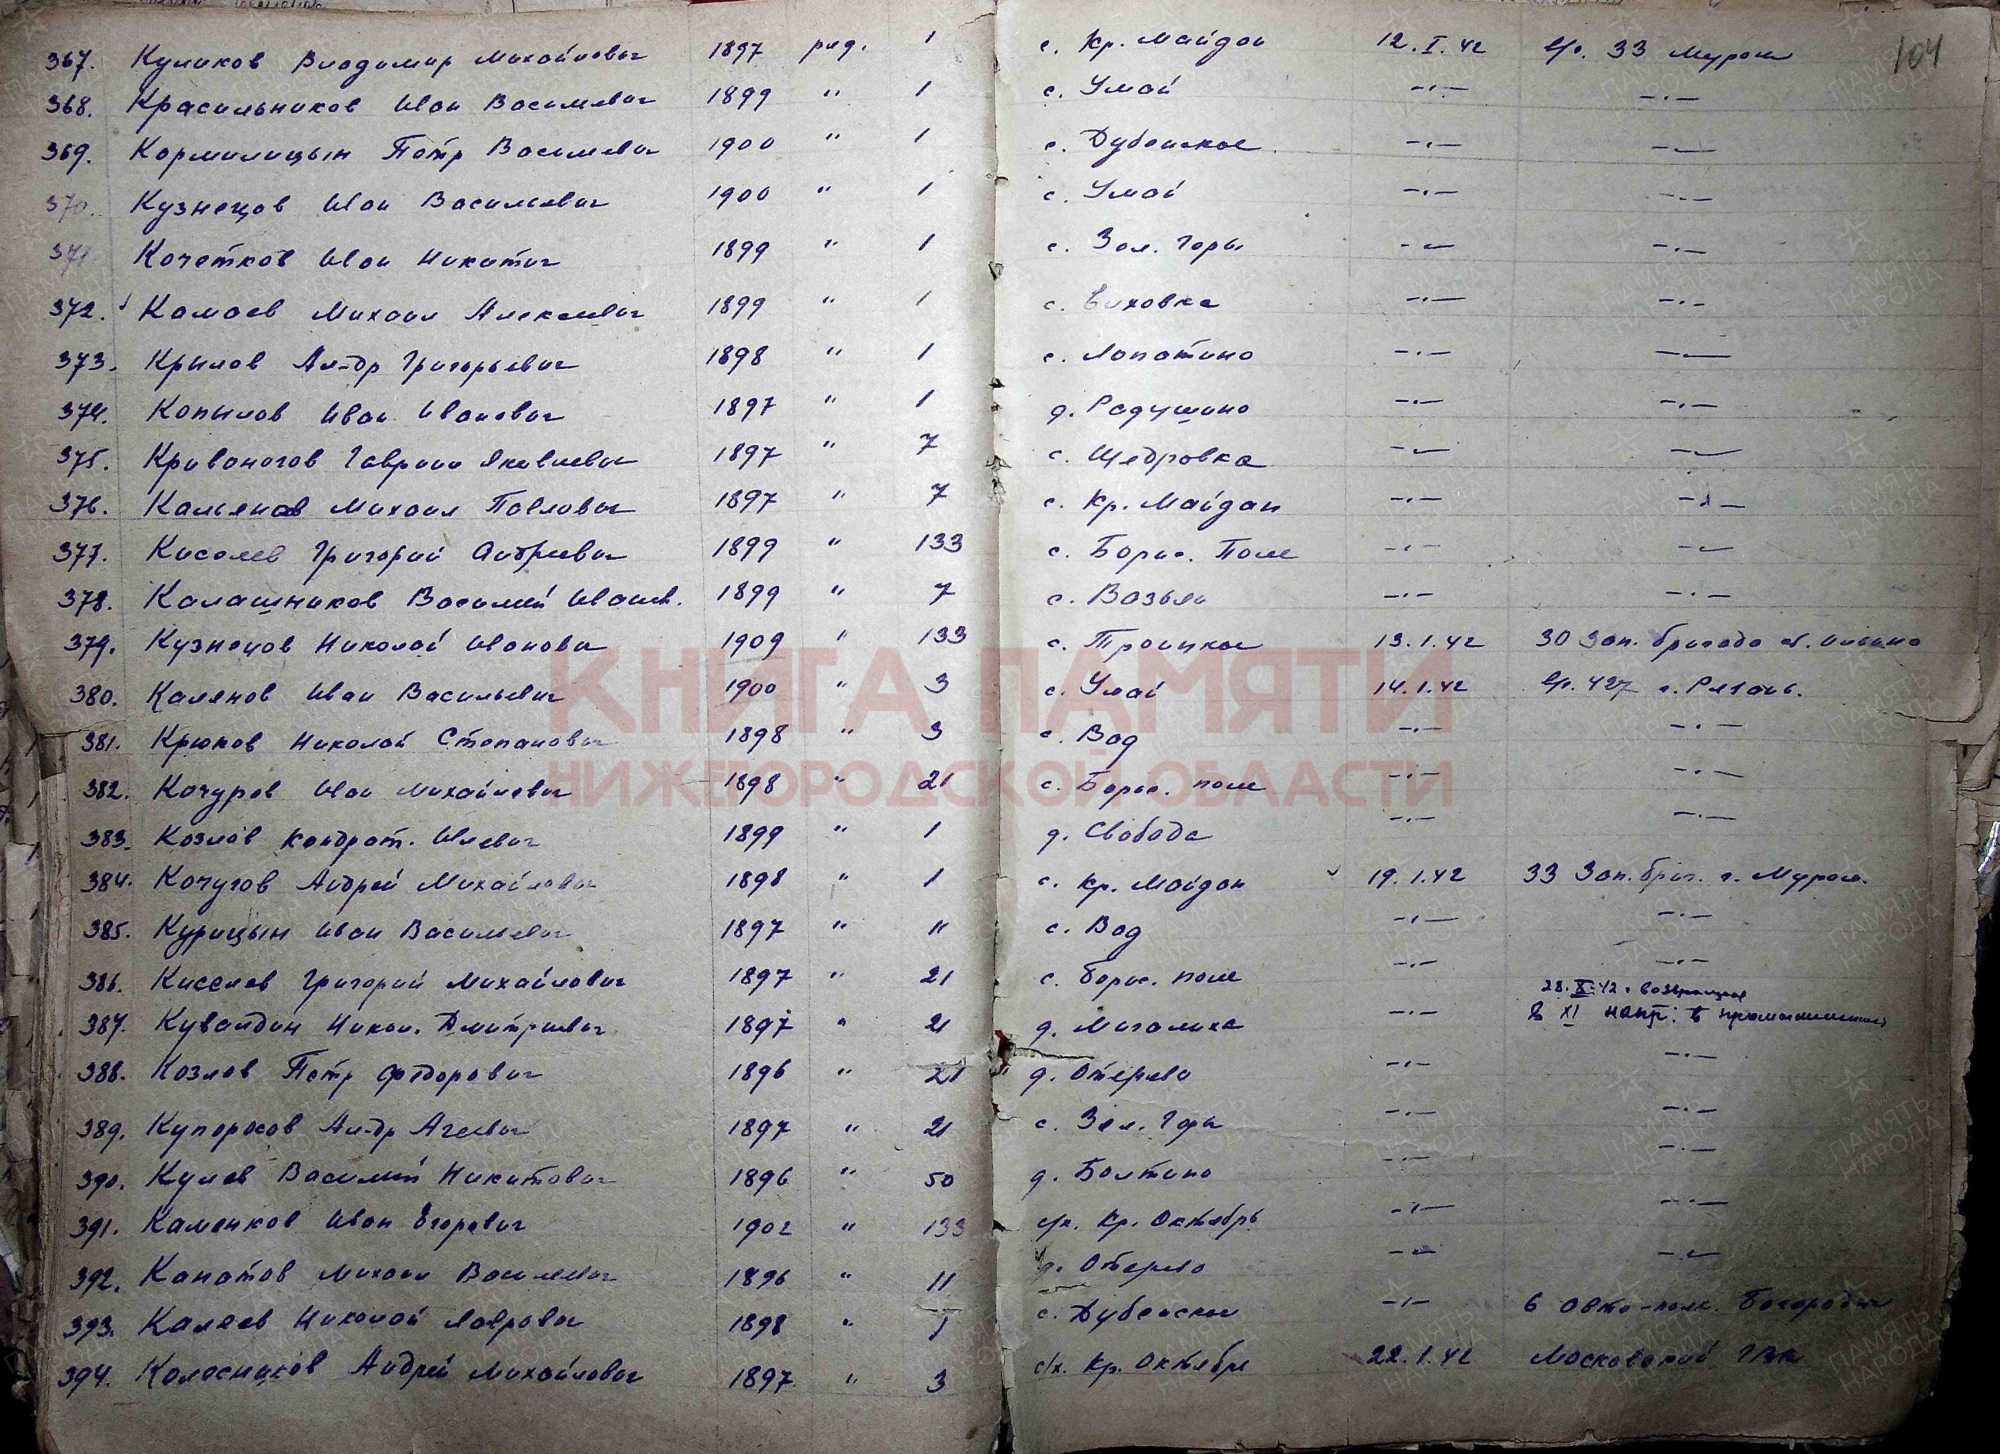 104
367. Куликов Владимир Михайлович 1897 ряд. 1 с. Кр. Майдан 12.I.42 в/ч. 33 Муром
368. Красильников Иван Васильевич 1899 " 1 с. Умай —·— —·—
369. Кормилицын Пётр Васильевич 1900 " 1 с. Дубенское —·— —·—
370. Кузнецов Иван Васильевич 1900 " 1 с. Умай —·— —·—
371. Кочетков Иван Никитич 1899 " 1 с. Зел. Горы —·— —·—
372. Камаев Михаил Алексеевич 1899 " 1 с. —·— —·—
373. Крылов Ал-др Григорьевич 1898 " 1 с. Лопатино —·— —·—
374. Копылов Иван Иванович 1897 " 1 д. Радушино —·— —·—
375. Кривоногов Гаврил Яковлевич 1897 " 7 с. Щедровка —·— —·—
376. Михаил Павлович 1897 " 7 с. Кр. Майдан —·— —·—
377. Киселев Григорий Андреевич 1899 " 133 с. Борис. Поле —·— —·—
378. Калашников Василий Иванов. 1899 " 7 с. Вазьян —·— —·—
379. Кузнецов Николай Иванович 1909 " 133 с. Троицкое 13.1.42 30 Зап. бригада ст. Ильино
380. Каленов Иван Васильевич 1900 " 3 с. Умай 14.1.42 в/ч. 427 г. Рязань.
381. Крюков Николай Степанович 1898 " 3 с. Вад —·— —·—
382. Кочуров Иван Михайлович 1898 " 21 с. Борис. поле —·— —·—
383. Козлов Кондрат. Ильевич 1899 " 1 д. Свобода —·— —·—
384. Кочугов Андрей Михайлович 1898 " 1 с. Кр. Майдан 19.1.42 33 Зап. бриг. г. Муром.
385. Курицын Иван Васильевич 1897 " 11 с. Вад —·— —·—
386. Киселев Григорий Михайлович 1897 " 21 с. Борис. поле —·— —·—
28.X.42г. возвращен
387. Кувалдин Никол. Дмитриевич 1897 " 21 д. Магалиха —·— в XI напр. в промышленность
388. Козлов Пётр Федорович 1896 " 21 д. Отерево —·— —·—
389. Купоросов Ал-др Агеевич 1897 " 21 с. Зел. Горы —·— —·—
390. Кулев Василий Никитович 1896 " 50 д. Болтино —·— —·—
391. Каменков Иван Егорович 1902 " 133 с/х. Кр. Октябрь —·— —·—
392. Канатов Михаил Васильевич 1896 " 11 д. Отерево —·— —·—
393. Николай Лаврович 1898 " 1 с. Дубенское —·— 6 авто-полк. Богородск
394. Колесников Андрей Михайлович 1897 " 3 с/х. Кр. Октябрь 22.1.42 Московский ГВК
КНИГА ПАМЯТИ
НИЖЕГОРОДСКОЙ ОБЛАСТИ
ПАМЯТЬ НАРОДА